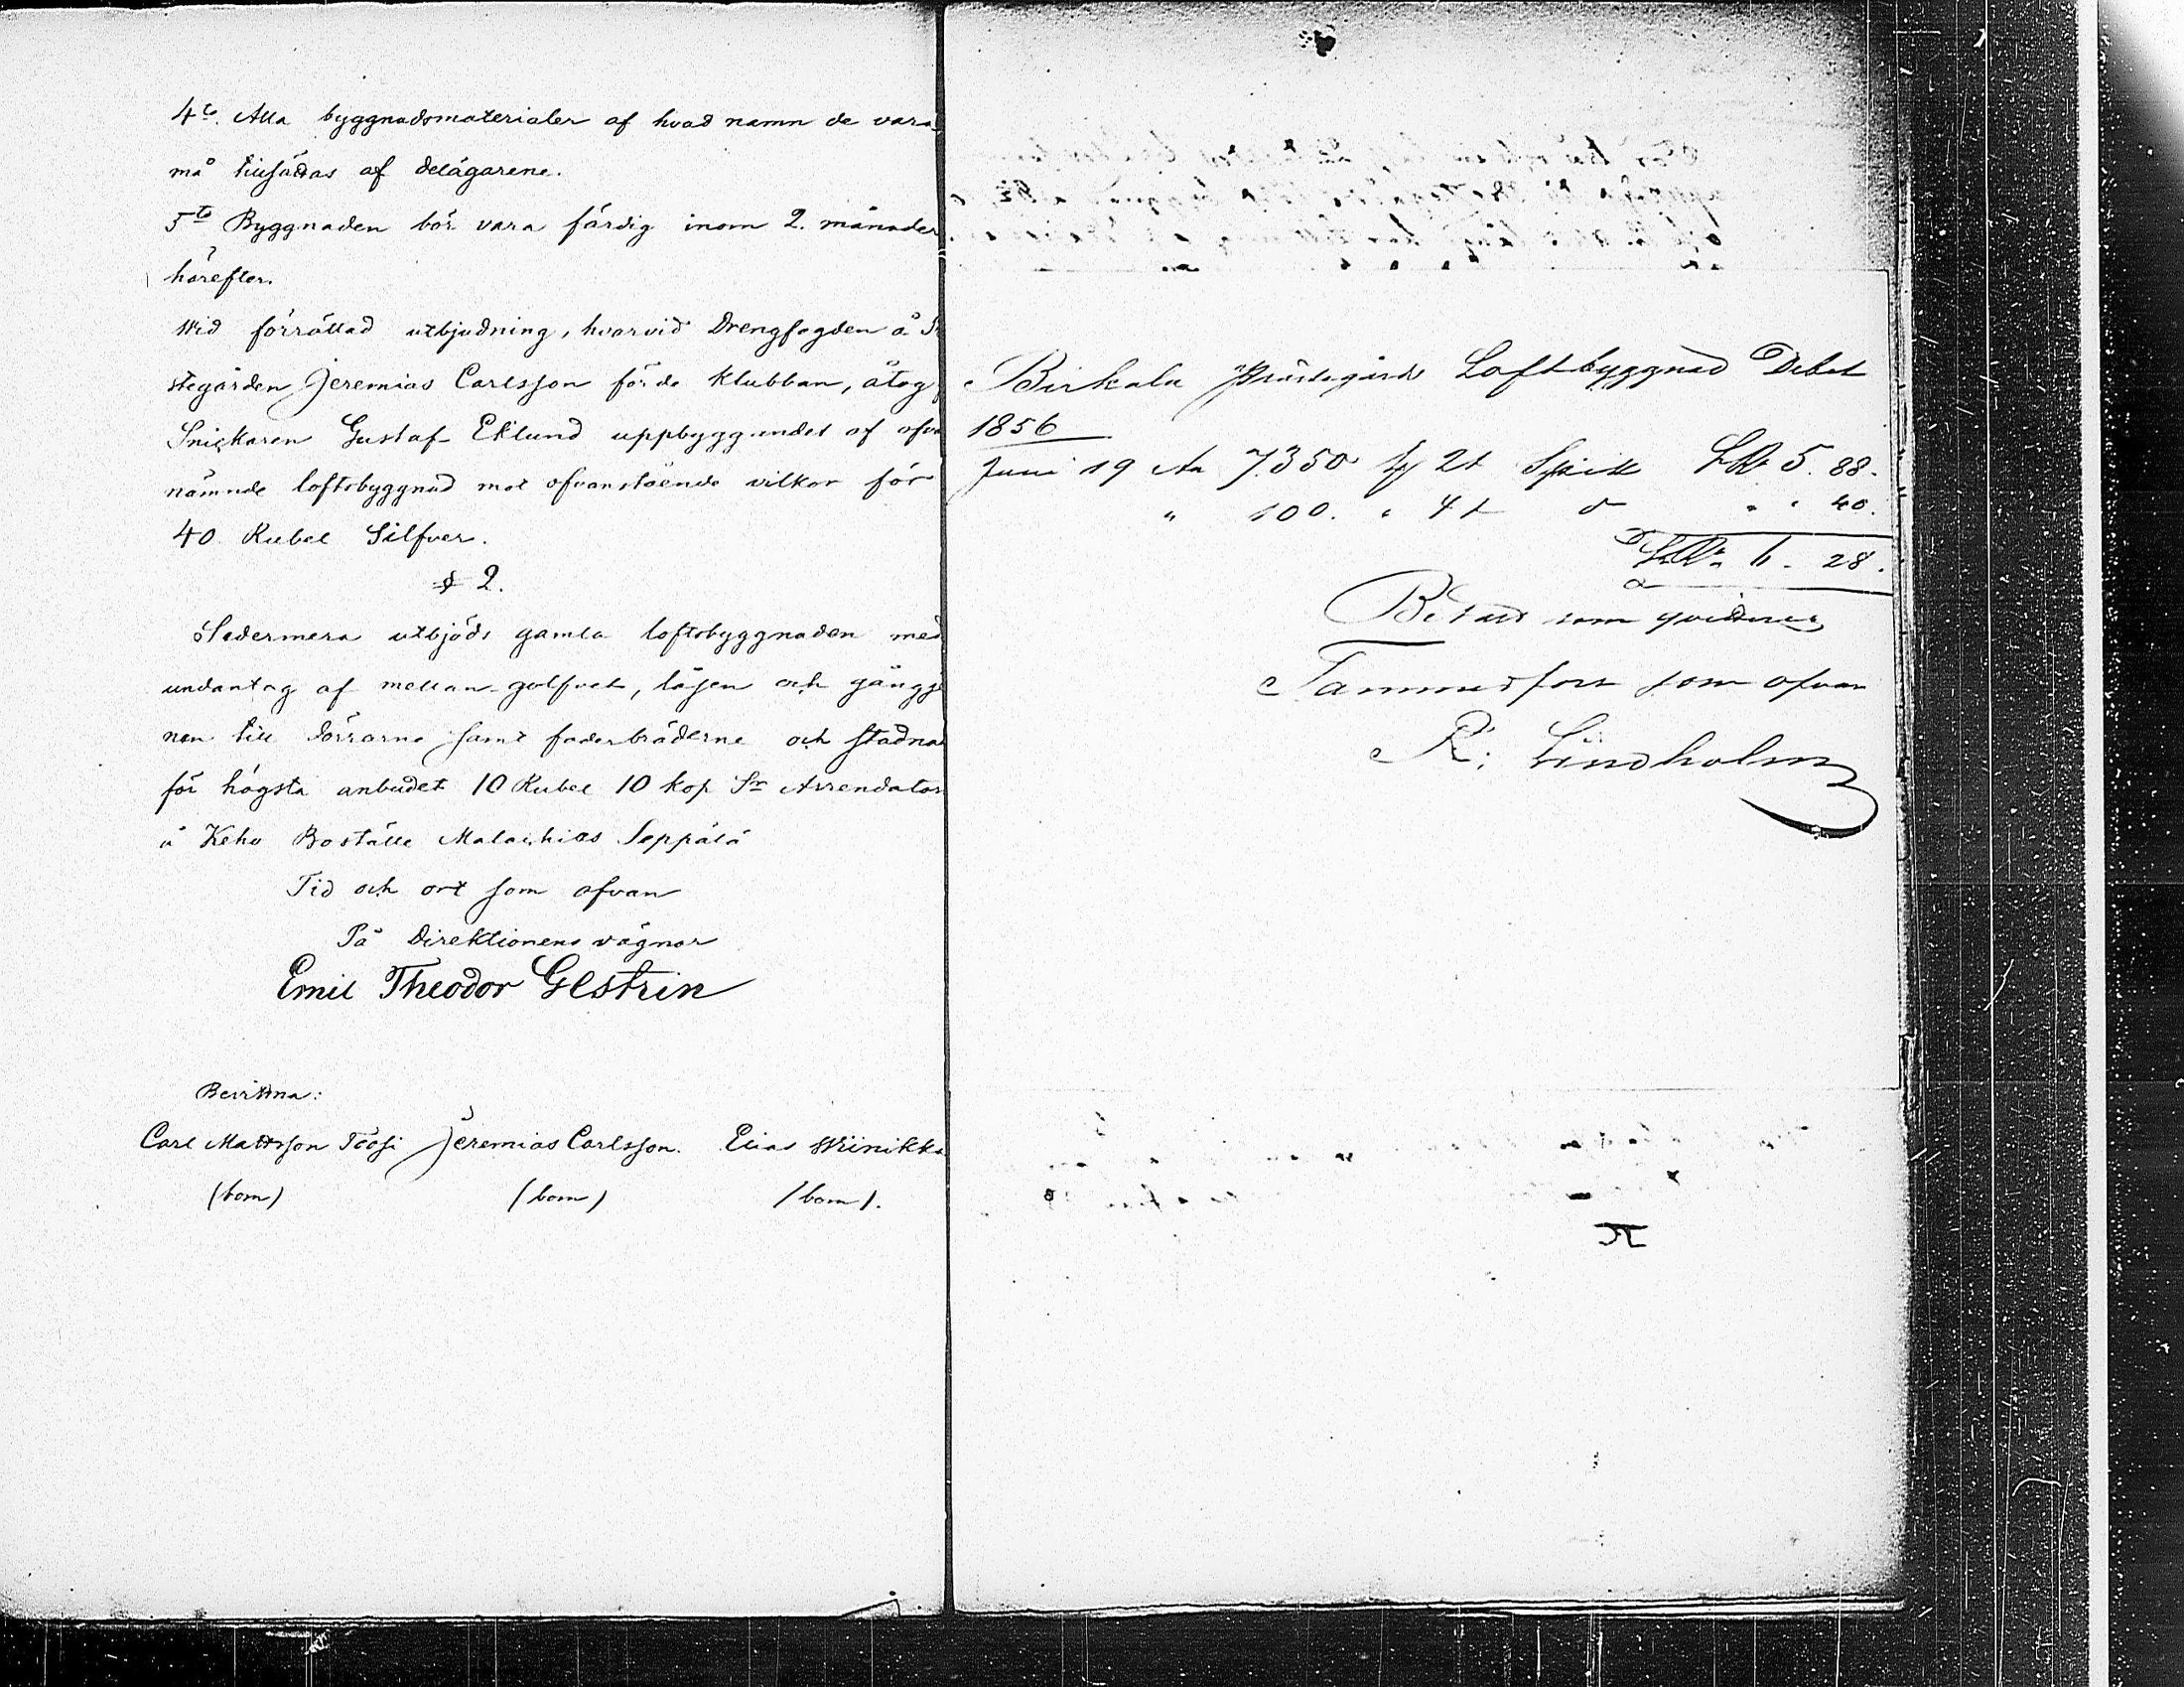 4to. Alla byggnadsmaterialer af hvad namn de vara
må tillsädas af delägarene.
5to Byggnaden bör vara färdig inom 2. månader
härefter.
Wid förrättad utbjudning, hvarvid Drengfogden å
stegården Jeremias Carlsson förde klubban, åtog
Snickaren Gustaf Eklund uppbyggandet af ofva
nämnde loftsbyggnad mot ofvanstående vilkor för
40 Rubel Silfver.
§ 2.
Sedermera utbjöds gamla loftsbyggnaden med
undantag af mellan-golfvet, låsen och gångje
nen till dörrarne samt foderbräderne och stadnad
för högsta anbudet 10 Rubel 10 kop Sr Arrendator
å Keho Boställe Malachias Seppälä
Tid och ort som ofvan
På Direktionens vägnar
Emil Theodor Gestrin
Bevittna:
Carl Mattsson Töösi Jeremias Carlsson. Elias Wiinikka
(bom) (bom) (bom).
Birkala Prästegårds Loftbyggnad Debet
1856
Juni 19 An 7350 St 2t Spik SRr 5. 88.
" 100. " 4t d " " 40.
SRr 6. 28.
Betalt som qvitteras
Tammerfors som ofvan
R: Lindholm